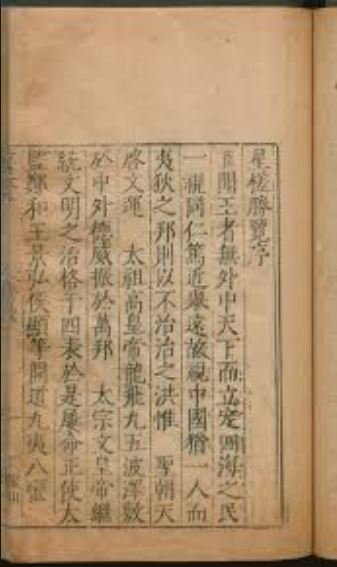 星槎勝覽序
臣聞王者無外中天下而立定四海之民
一視同仁篤近舉遠故視中國猶一人而
夷狄之邦則以不治治之洪惟 聖朝天
啓文運 太祖高皇帝龍飛九五波澤敷
於中外德威振於萬邦 太宗文皇帝繼
統文明之治格于四表於是屢命正使太
監鄭和王景弘侯顯等開道九夷八蠻